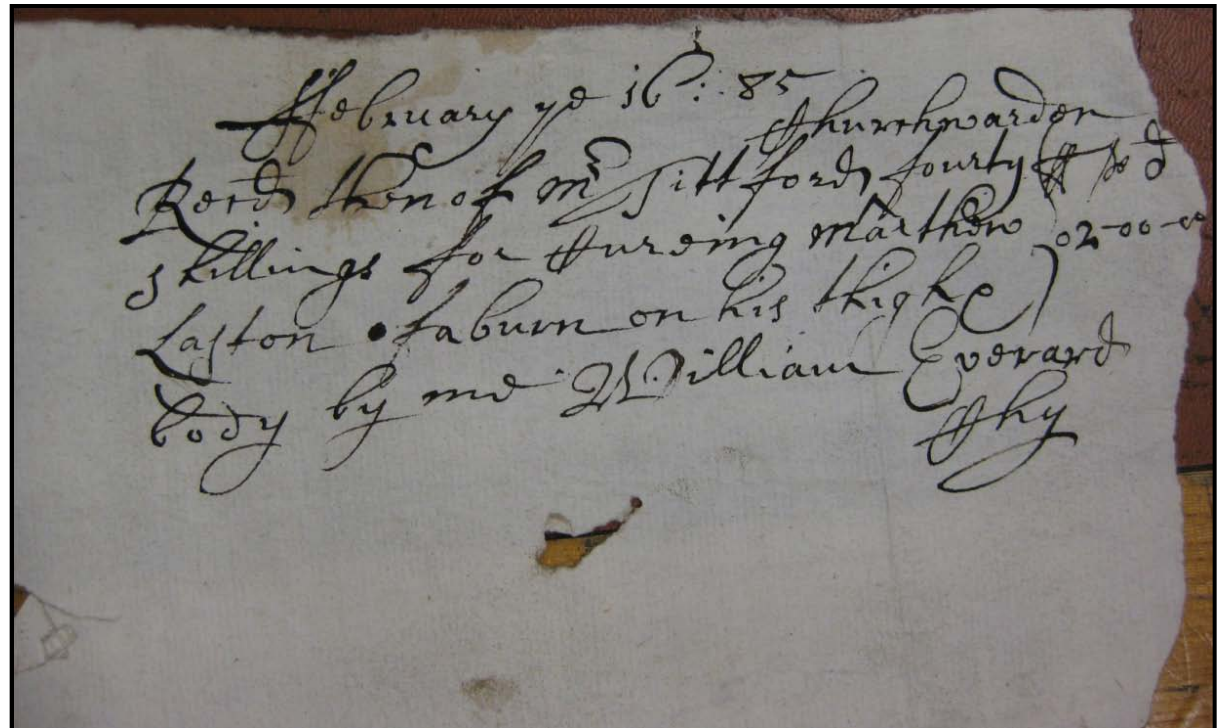 ffebruary ye 16: 85
Churchwarden
Recd then of mr Tittford fourty £ s d
shillings for Cureing Marthew 02-00-00
Laston of a burn on his thigh
body by me William Everard
Chy